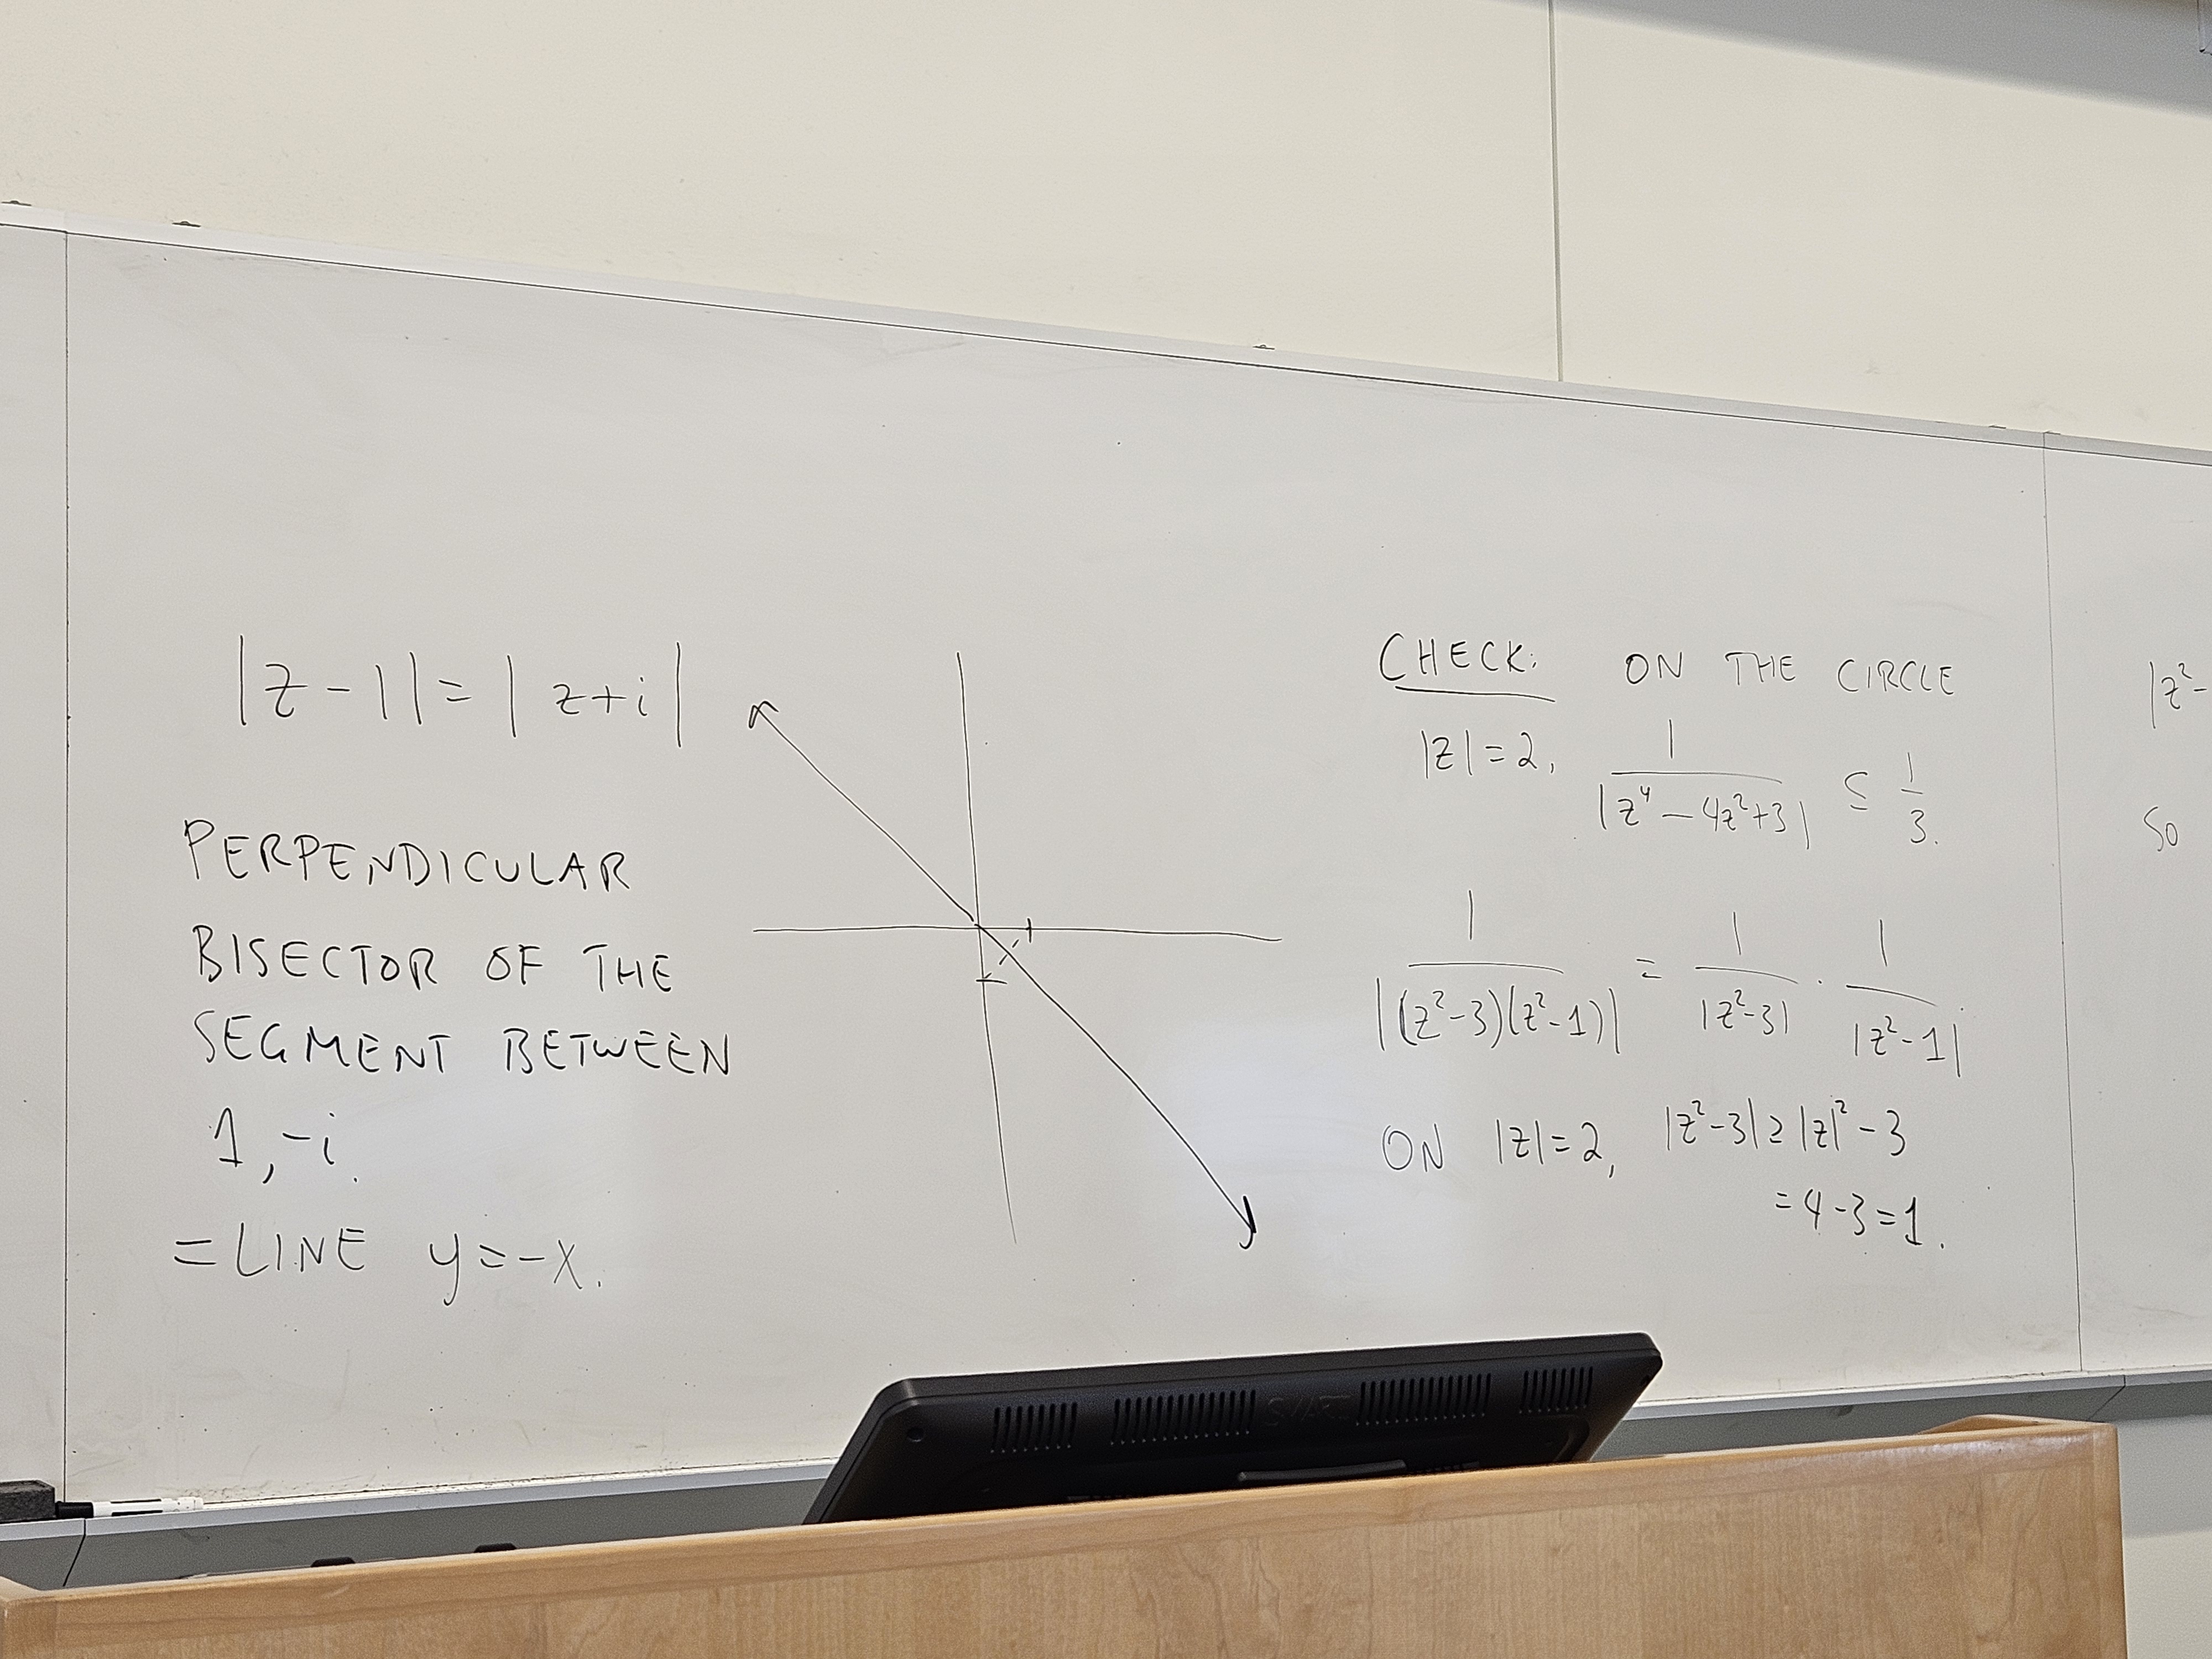 |z-1|=|z+i|
PERPENDICULAR
BISECTOR OF THE
SEGMENT BETWEEN
1,-i.
=LINE y=-x.
CHECK: ON THE CIRCLE
|z|=2, 1/|z⁴-4z²+3| ≤ 1/3.
1/|(z²-3)(z²-1)| = 1/|z²-3| · 1/|z²-1|
ON |z|=2, |z²-3|≥|z|²-3
=4-3=1.
|z²-
SO
SMART